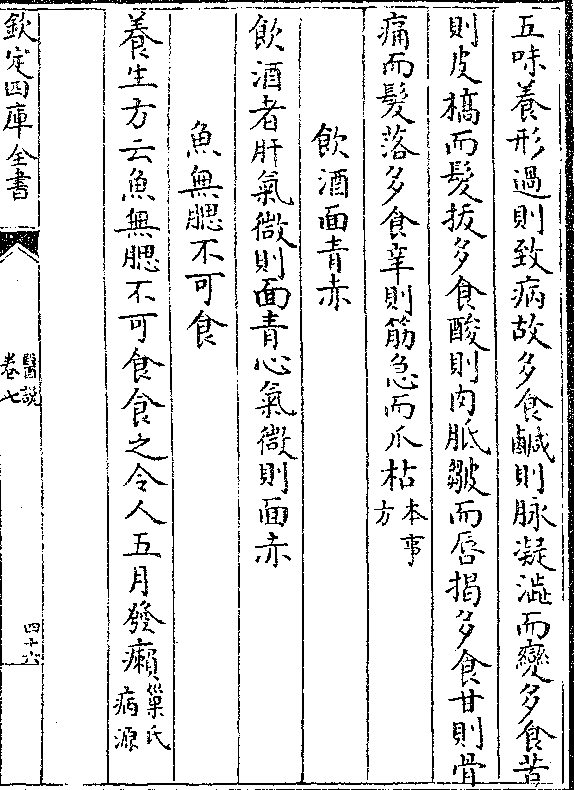 五味養形過則致病故多食鹹則脉凝澁而變多食苦
則皮槁而髮拔多食酸則肉胝皺而唇揭多食甘則骨
痛而髮落多食辛則筋急而爪枯本事方
飲酒面青赤
飲酒者肝氣微則面青心氣微則面赤
魚無腮不可食
養生方云魚無腮不可食食之令人五月發癩巢氏病源
欽定四庫全書
醫説
卷七
四十六